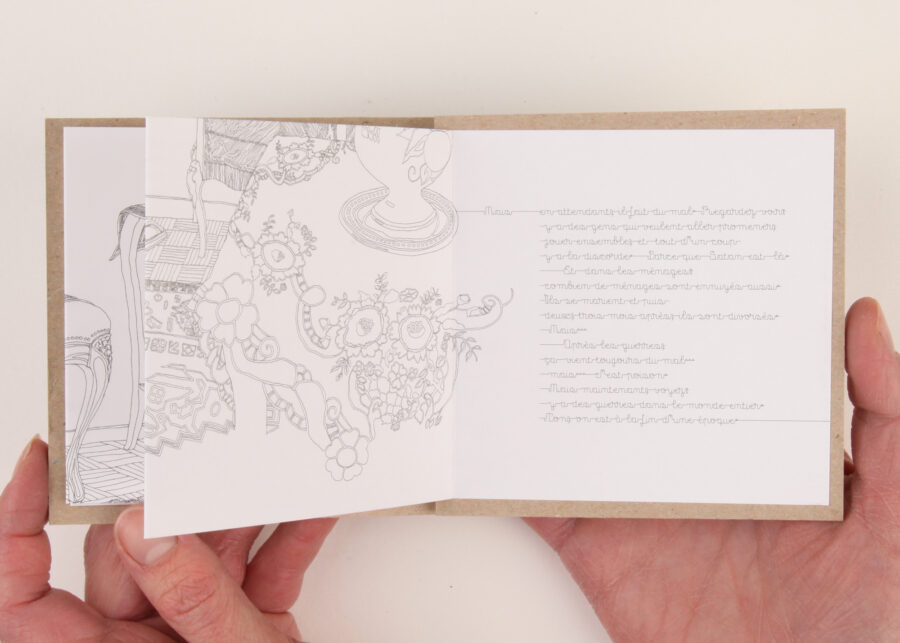 Mais en attendants il fait du mal. Regardez voir
y a des gens qui veulent aller promeners
jouer ensembles et tout d'un coup
y a la discorde. Parce que Satan est là.
Et dans les ménages
combien de ménages sont ennuyés aussi.
Ils se marient et puis
deux, trois mois après ils sont divorsés.
Mais...
Après les guerres
ça vient toujours du mal...
mais... c'est poison.
Mais maintenants voyez
y a des guerres dans le monde entier.
Nons on est à la fin d'une époque.